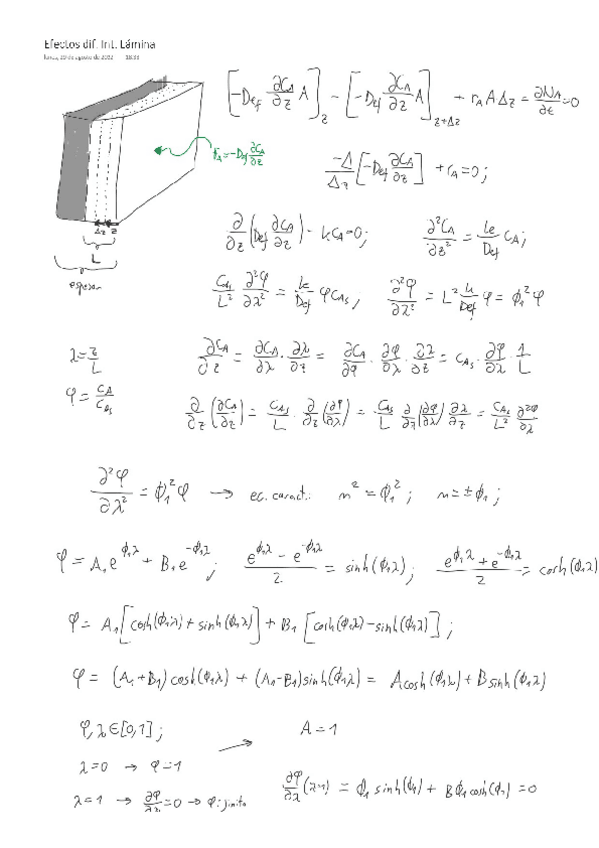 Efectos dif. Int. Lámina
lunes, 29 de agosto de 2022 18:33
[-D_ef ∂C_A/∂z A]_z - [-D_ef ∂C_A/∂z A]_{z+Δz} + r_A A Δz = ∂N_A/∂t = 0
= -D_ef ∂C_A/∂z
-Δ/Δz [-D_ef ∂C_A/∂z] + r_A = 0;
Δz z
L
espesor
∂/∂z (D_ef ∂C_A/∂z) - kC_A = 0; ∂²C_A/∂z² = k/D_ef C_A;
C_As/L² ∂²φ/∂λ² = k/D_ef φC_As; ∂²φ/∂λ² = L² k/D_ef φ = ϕ₁² φ
λ = z/L ∂C_A/∂z = ∂C_A/∂λ · ∂λ/∂z = ∂C_A/∂φ · ∂φ/∂λ · ∂λ/∂z = C_As · ∂φ/∂λ · 1/L
φ = C_A/C_As ∂/∂z (∂C_A/∂z) = C_As/L · ∂/∂z (∂φ/∂λ) = C_As/L ∂/∂λ (∂φ/∂λ) ∂λ/∂z = C_As/L² ∂²φ/∂λ
∂²φ/∂λ² = ϕ₁² φ → ec. caract.: m² = ϕ₁²; m = ±ϕ₁;
φ = A₁e^{ϕ₁λ} + B₁e^{-ϕ₁λ}; (e^{ϕ₁λ} - e^{-ϕ₁λ})/2 = sinh(ϕ₁λ); (e^{ϕ₁λ} + e^{-ϕ₁λ})/2 = cosh(ϕ₁λ)
φ = A₁[cosh(ϕ₁λ) + sinh(ϕ₁λ)] + B₁[cosh(ϕ₁λ) - sinh(ϕ₁λ)];
φ = (A₁+B₁)cosh(ϕ₁λ) + (A₁-B₁)sinh(ϕ₁λ) = Acosh(ϕ₁λ) + Bsinh(ϕ₁λ)
φ, λ ∈ [0,1]; → A = 1
λ = 0 → φ = 1
λ = 1 → ∂φ/∂λ = 0 → φ: finito ∂φ/∂λ (λ=1) = ϕ₁ sinh(ϕ₁) + Bϕ₁ cosh(ϕ₁) = 0